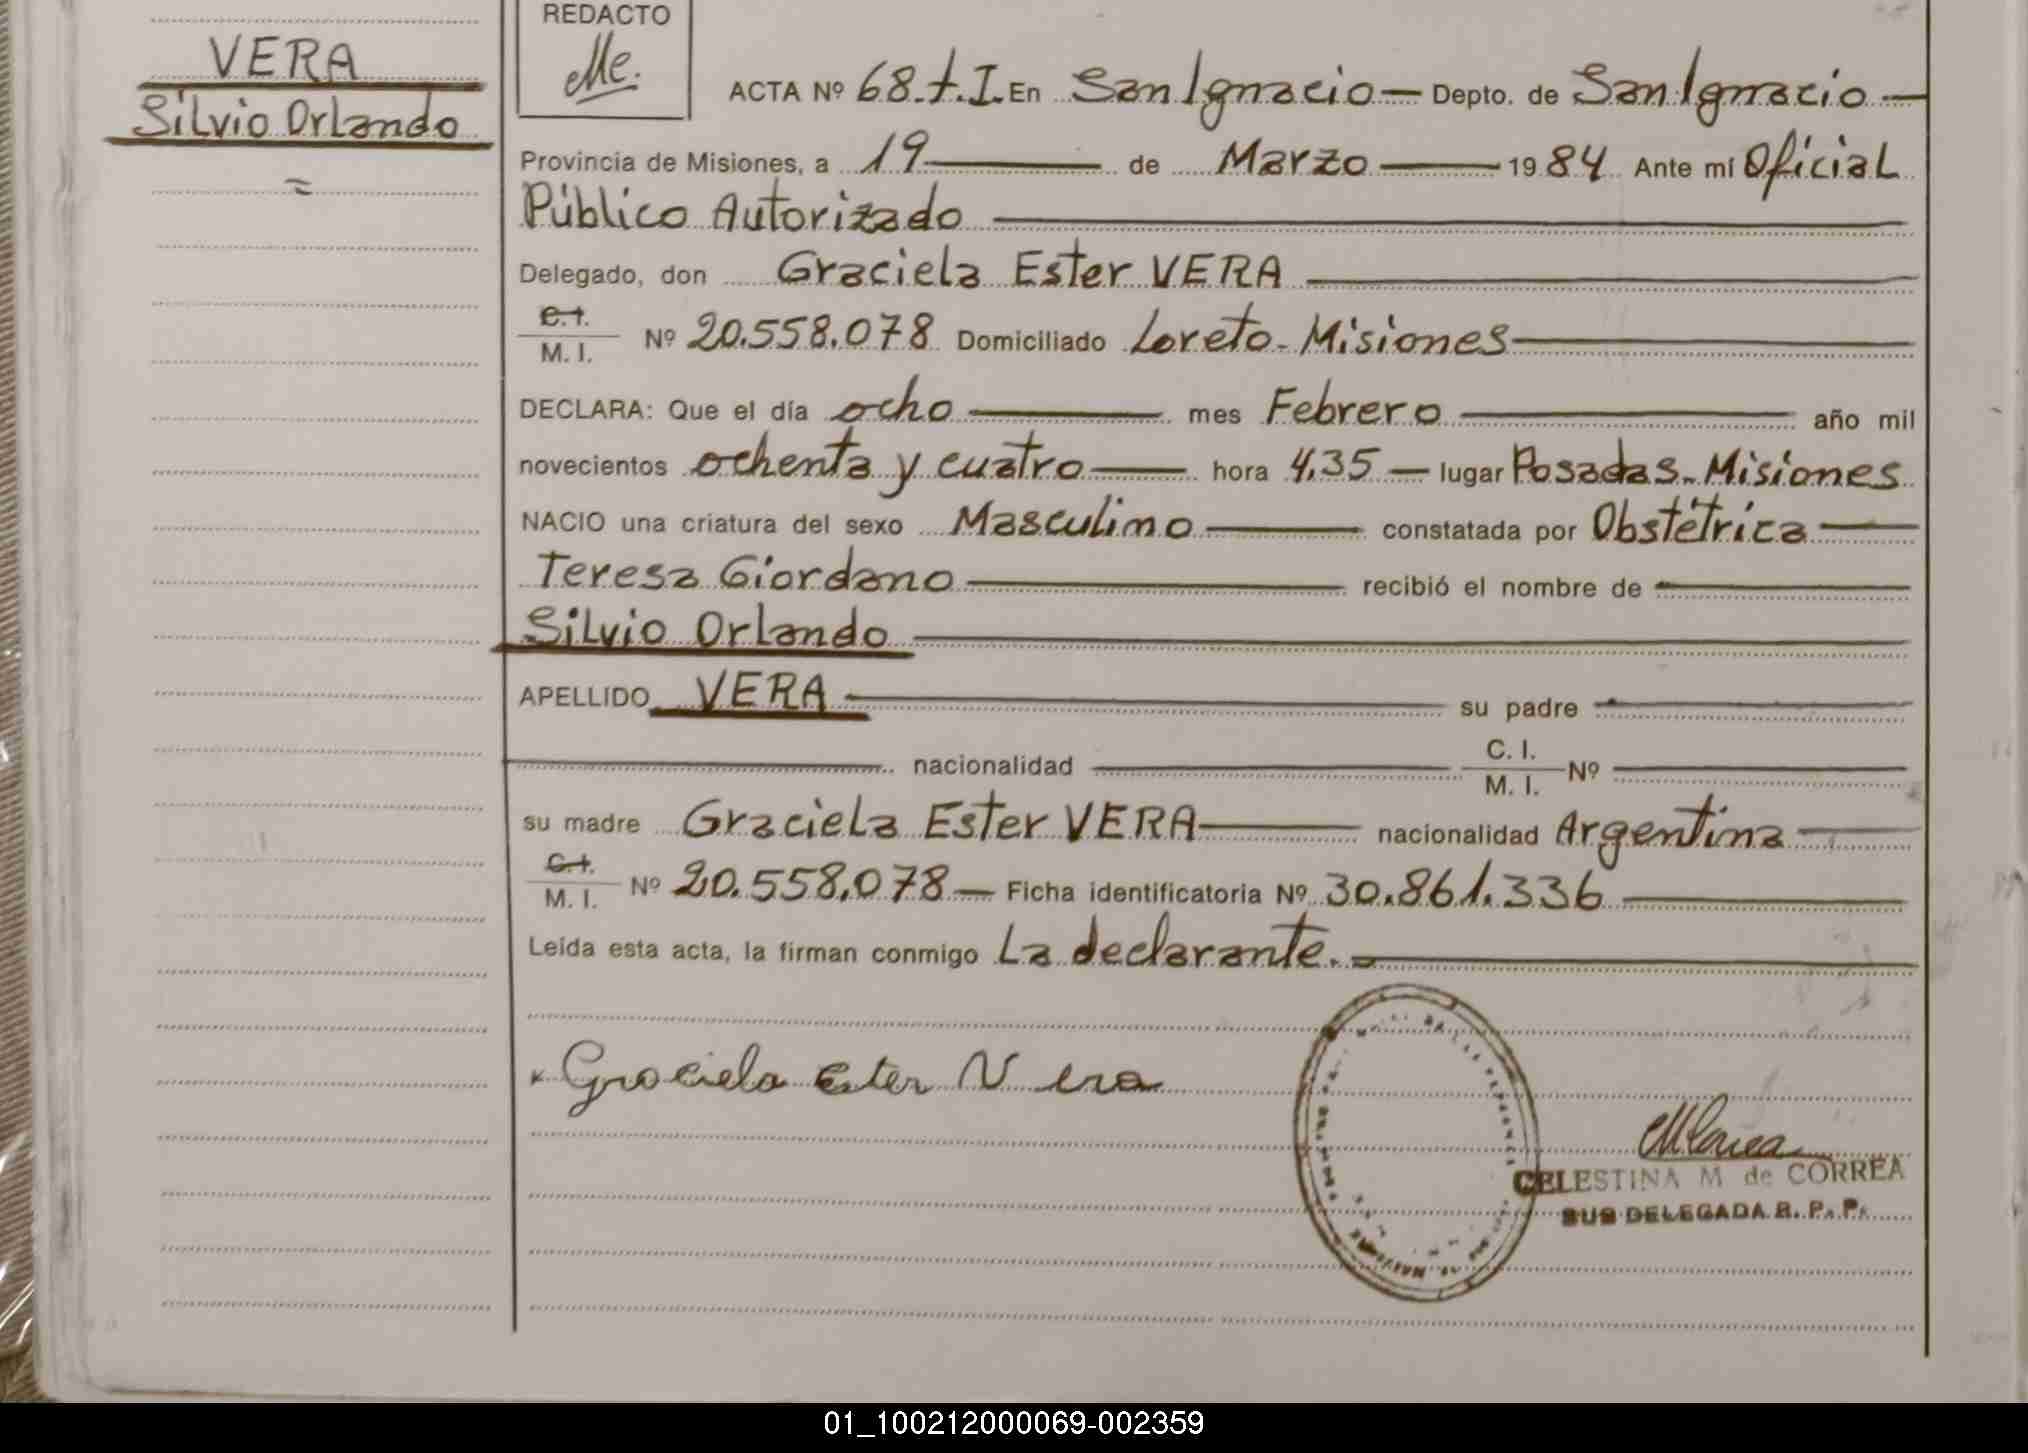 VERA
Silvio Orlando
=
REDACTO
ACTA Nº 68.t.I. En San Ignacio — Depto. de San Ignacio —
Provincia de Misiones, a 19 — de Marzo — 1984 Ante mí Oficial
Público Autorizado —
Delegado, don Graciela Ester VERA —
C.I.
M. I. Nº 20.558.078 Domiciliado Loreto - Misiones —
DECLARA: Que el día ocho — mes Febrero — año mil
novecientos ochenta y cuatro — hora 4,35 — lugar Posadas - Misiones
NACIO una criatura del sexo Masculino — constatada por Obstétrica —
Teresa Giordano — recibió el nombre de —
Silvio Orlando —
APELLIDO VERA — su padre —
— nacionalidad — C. I.
M. I. Nº —
su madre Graciela Ester VERA — nacionalidad Argentina —
C.I.
M. I. Nº 20.558.078 — Ficha identificatoria Nº 30.861.336 —
Leída esta acta, la firman conmigo La declarante. —
Graciela Ester Vera
CELESTINA M de CORREA
SUB DELEGADA R. P. P.
01_100212000069-002359